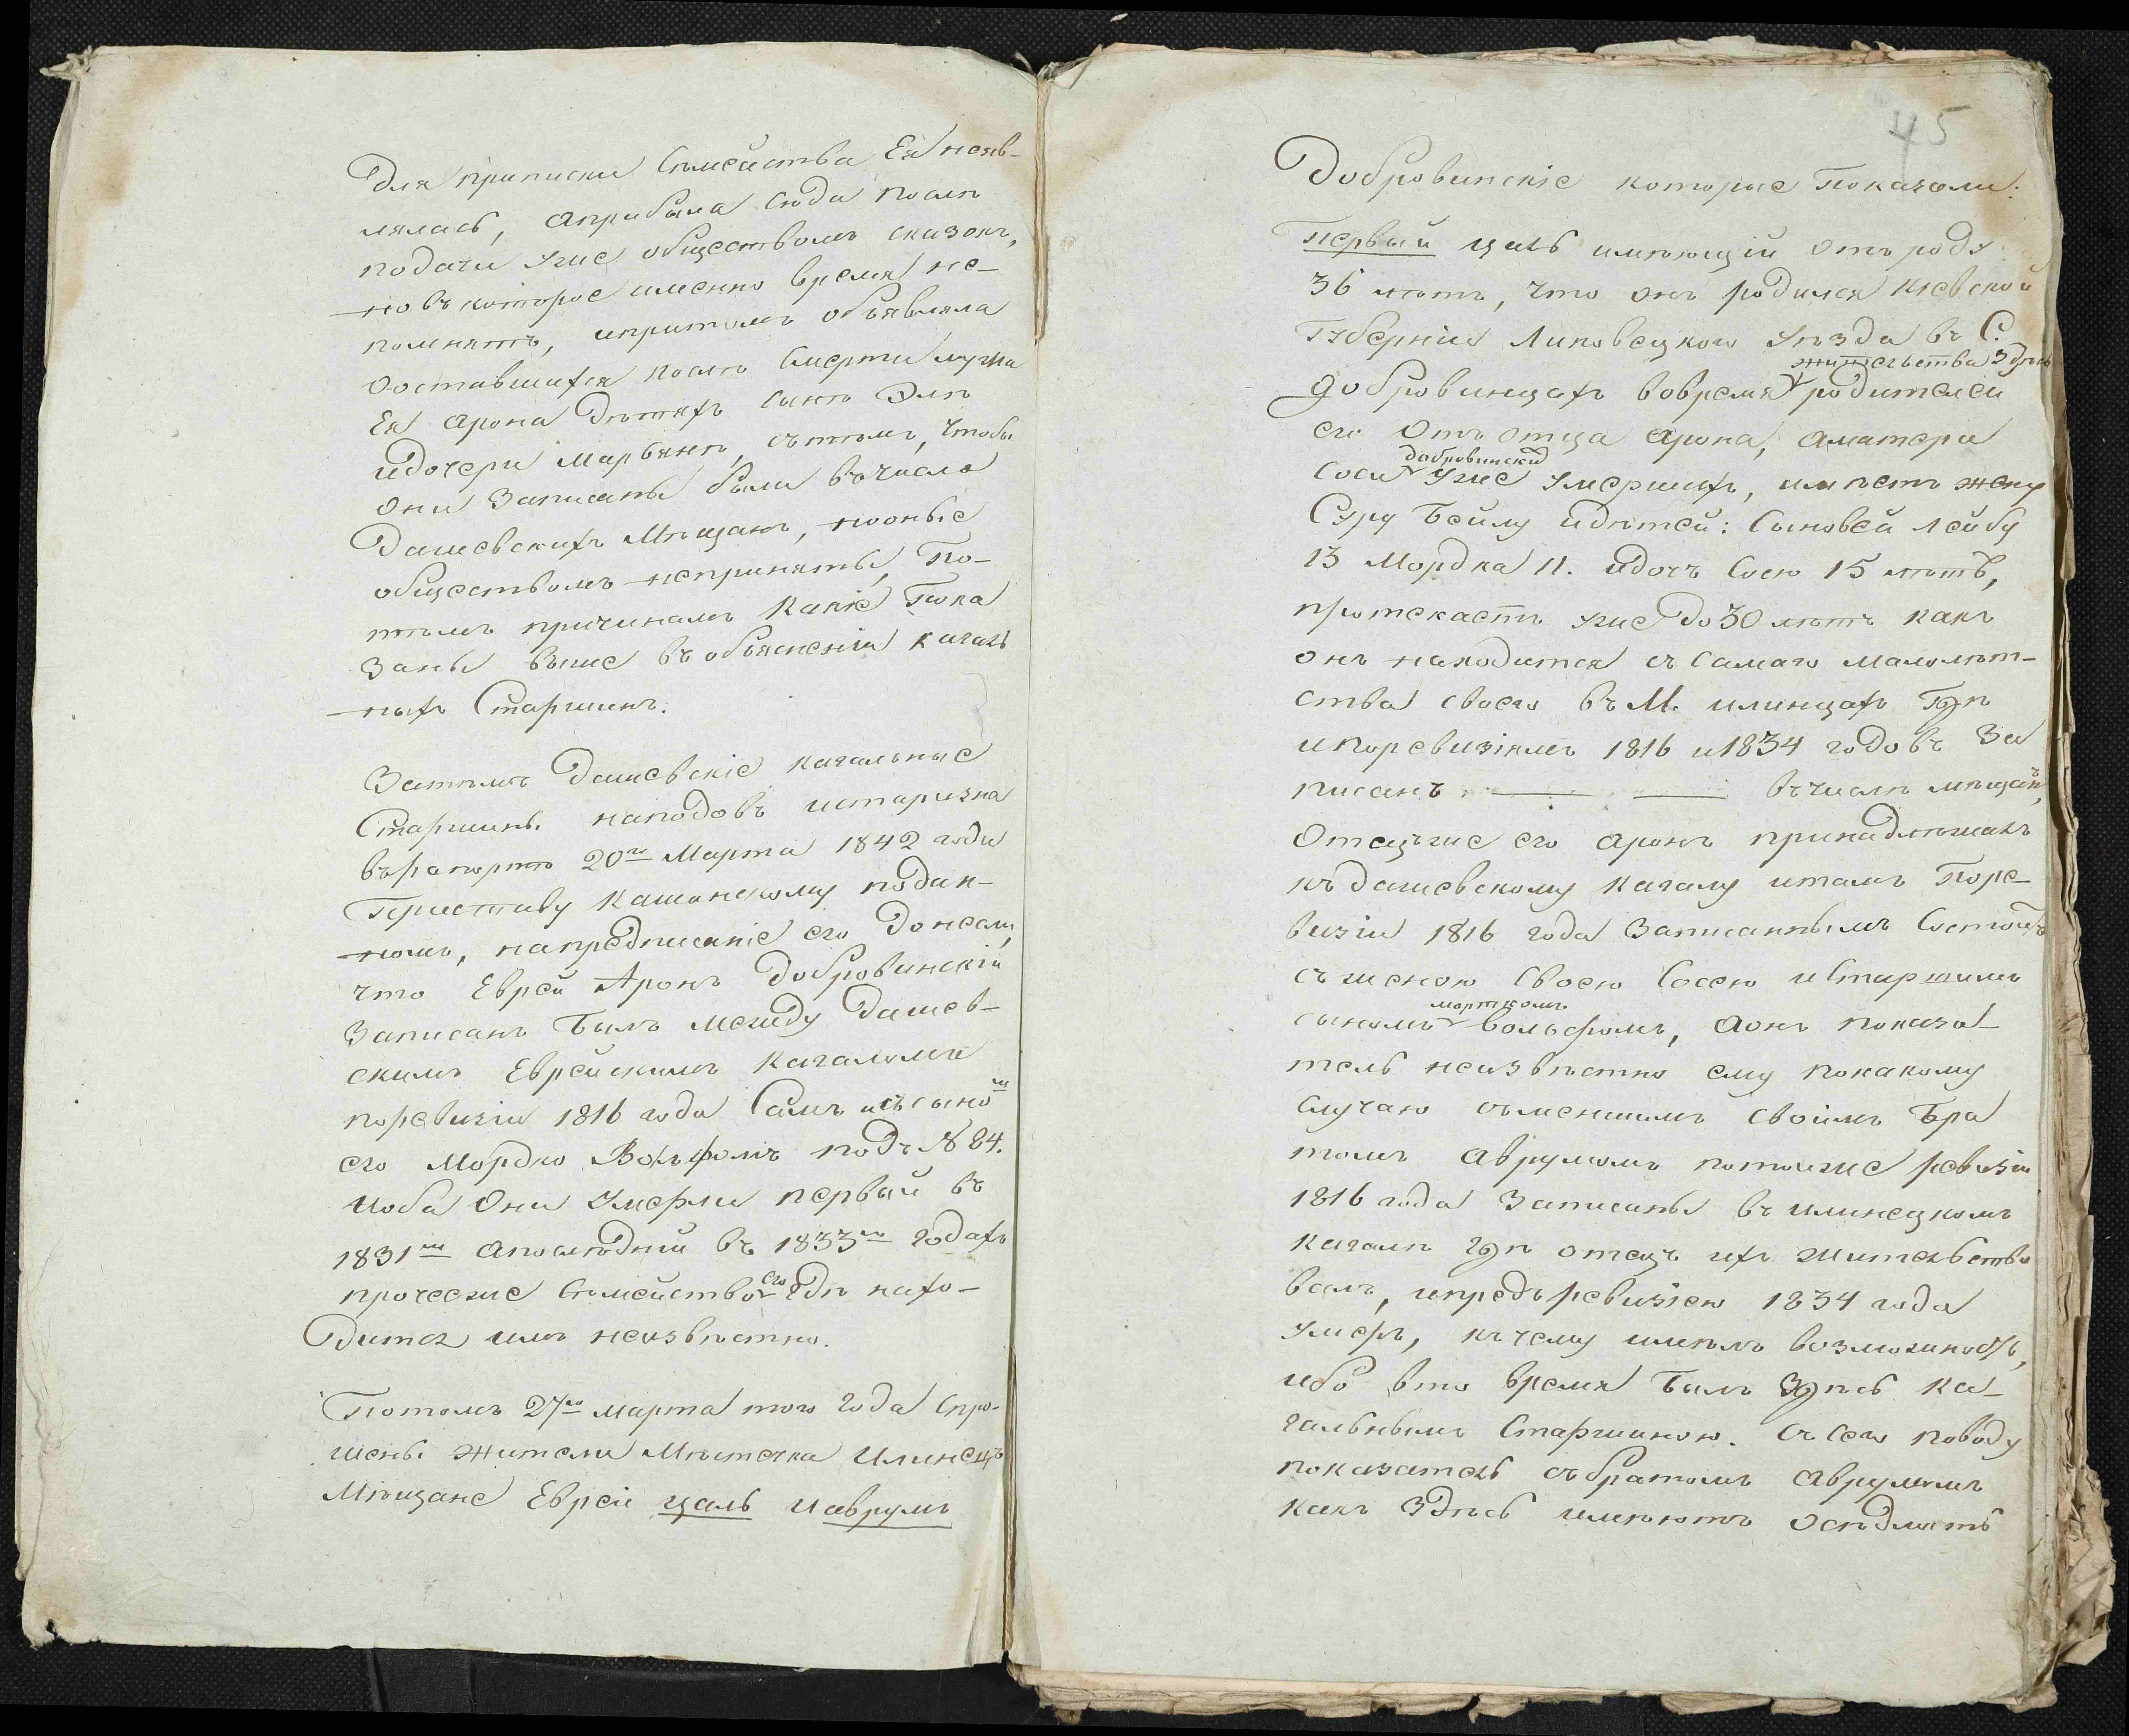 Для приписки Съмейства Ея неяв-
лялась, априбыла Сюда послѣ
подачи уже обществомъ сказокъ,
но въ которое именно время не-
помнятъ, ипритомъ объявляла
Ооставшихся послѣ Смерти мужа
Ея Арона Дѣтяхъ Сынѣ Элѣ
идочери Марьянѣ, стѣмъ, чтобы
Они Записаны были вчисло
Дашевскихъ Мѣщанъ, нооные
обществомъ неприняты, По-
тѣмъ причинамъ Какіе Пока
Заны выше въ объясненіи кагаль
ныхъ Старшинъ.
Затѣмъ Дашевскіе кагальные
Старшины наподовъ истаризна
врапортѣ 20го Марта 1842 года
Приставу Кашинскому подан-
номъ, напредписаніе его Донесли,
что Еврей Аронъ Добровинскій
Записанъ Былъ Между Дашев-
скимъ Еврейскимъ Кагаломъ
поревизіи 1816 года Самъ исъ сыномъ
его Мордко Вольфомъ подъ № 84.
иоба Они Умерли первый въ
1831мъ апослѣдній въ 1833мъ Годахъ
прочееже Съмейство его гдѣ нахо-
Дится имъ неизвѣстно.
Потомъ 27го марта того года Спро-
шены Жители Мѣстечка Илинецъ
Мѣщане Евреи Цаль иаврумъ
45
Добровинскіе которые Показали:
Первый цаль имѣющій Отъ роду
36 лѣтъ, что онъ родился Кіевской
Губерніи Липовецкого Уѣзда въ С.
жительства Здѣсь
Добровинцахъ вовремя родителей
его Отъ отца Арона, аматери
добровинскій
Соси Уже умершихъ, имѣетъ жену
Суру Бейлу идѣтей: Сыновей Лейбу
13 Мордка 11. идочь Сосю 15 лѣтъ,
протекаетъ уже до 30 лѣтъ какъ
онъ находится съ Самаго малолѣт-
ства своего въ М. илинцахъ Гдѣ
ипоревизіямъ 1816 и 1834 годовъ За
писанъ вчислѣ мѣщанъ,
Отецъже его Аронъ принадлежалъ
къ дашевскому Кагалу итамъ Поре-
визіи 1816 года Записаннымъ Состоитъ
съ женою Своею Сосею иСтаршимъ
морткомъ
сыномъ Вольфомъ, Аонъ показа-
тель неизвѣстно ему покакому
Случаю съменшимъ Своимъ Бра
томъ Аврумомъ потойже ревизіи
1816 года Записаны въ илинецкомъ
Кагалѣ гдѣ отецъ ихъ жительство
валъ, ипредъ ревизіею 1834 года
умеръ, кчему имѣлъ возможность,
ибо вто время Былъ Здѣсь Ка-
гальнымъ Старшиною. Съ Сего поводу
показатель съ братомъ Аврумомъ
какъ Здѣсь имѣютъ Осѣдлость